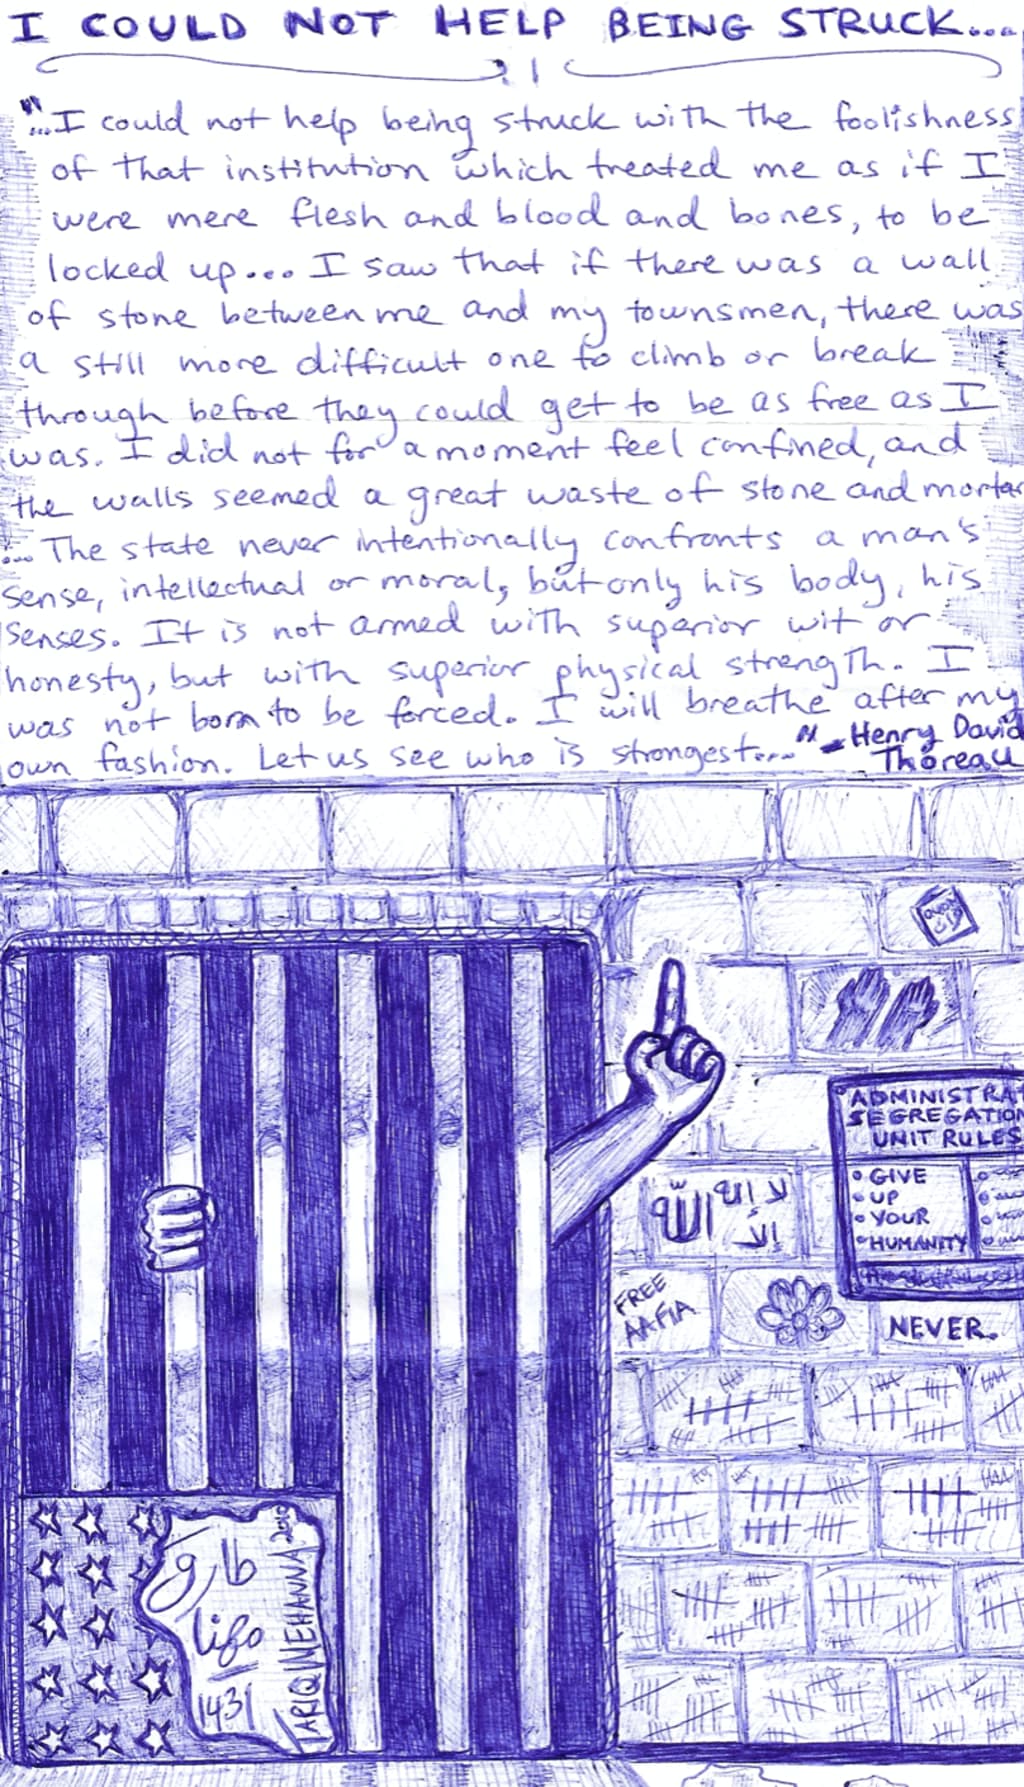 I COULD NOT HELP BEING STRUCK...
"...I could not help being struck with the foolishness
of that institution which treated me as if I
were mere flesh and blood and bones, to be
locked up... I saw that if there was a wall
of stone between me and my townsmen, there was
a still more difficult one to climb or break
through before they could get to be as free as I
was. I did not for a moment feel confined, and
the walls seemed a great waste of stone and mortar
... The state never intentionally confronts a man's
sense, intellectual or moral, but only his body, his
senses. It is not armed with superior wit or
honesty, but with superior physical strength. I
was not born to be forced. I will breathe after my
own fashion. Let us see who is strongest..." - Henry David
Thoreau
ADMINISTRA
SEGREGATION
UNIT RULES
• GIVE
• UP
• YOUR
• HUMANITY
لا إله
إلا الله
FREE
AAFIA
NEVER.
طارق
1431
TARIQ MEHANNA 2010